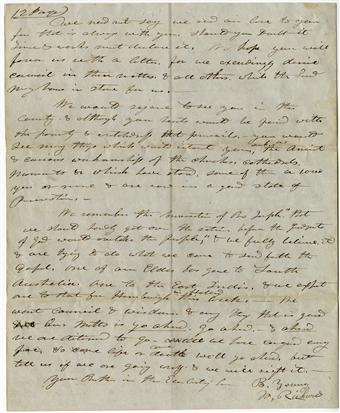 (2 Page)
We need not say we send our love to you
for that is always with you, should you doubt it
time & works must declare it. We hope you will
favor us with a letter, for we exceedingly desire
council in these matters, & all others, which the Lord
may have in store for us.—
We would rejoice to see you in this
County, & although your heart would be pained with
the poverty & wretchedness that prevail, you would
see many things which would interest you, the Ancient
& curious workmanship of the churches, cathedrals,
Monuments & which have stood, some of them a 1000
years or more & are now in a good state of
Preservation.—
We remember the prophecy of Bro Joseph, that
we should hardly get over the water, before the Judgments
of God would overtake the people, & we fully believe it
& are trying to do what we came to send forth the
Gospel, one of our Elders has gone to South
Australia, one to the East Indies, & we expect
one to start for Hamburgh, in Week.— We
want council & wisdom, & any thing that is good
Our motto is go ahead. Go ahead.— & ahead
we are determined to go till we have conquered every
foe, So come life or come death we'll go ahead, but
tell us if we are going wrong, & we will right it.—
Your Brethren in the Everlasting
B. Young
W. Richards